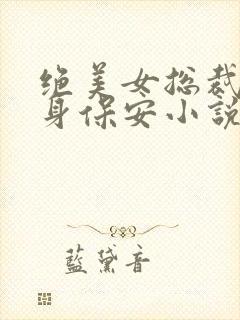 绝美女总裁
身保安小説
藍黛音